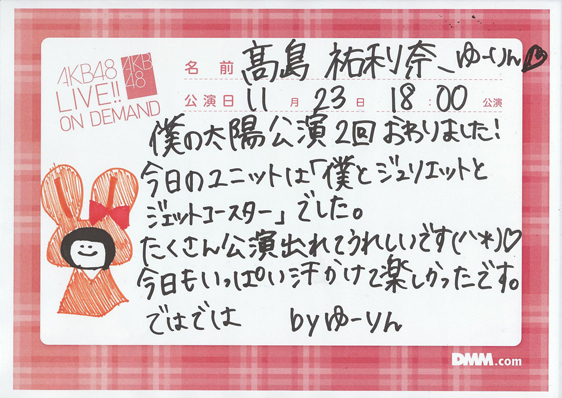 AKB48
LIVE!!
ON DEMAND
AKB
48
名前 髙島 祐利奈_ゆーりん♡
公演日 11月23日 18:00公演
僕の太陽公演2回おわりました!
今日のユニットは「僕とジュリエットと
ジェットコースター」でした。
たくさん公演出れてうれしいです(^^*)♡
今日もいっぱい汗かけて楽しかったです。
ではでは byゆーりん
DMM.com